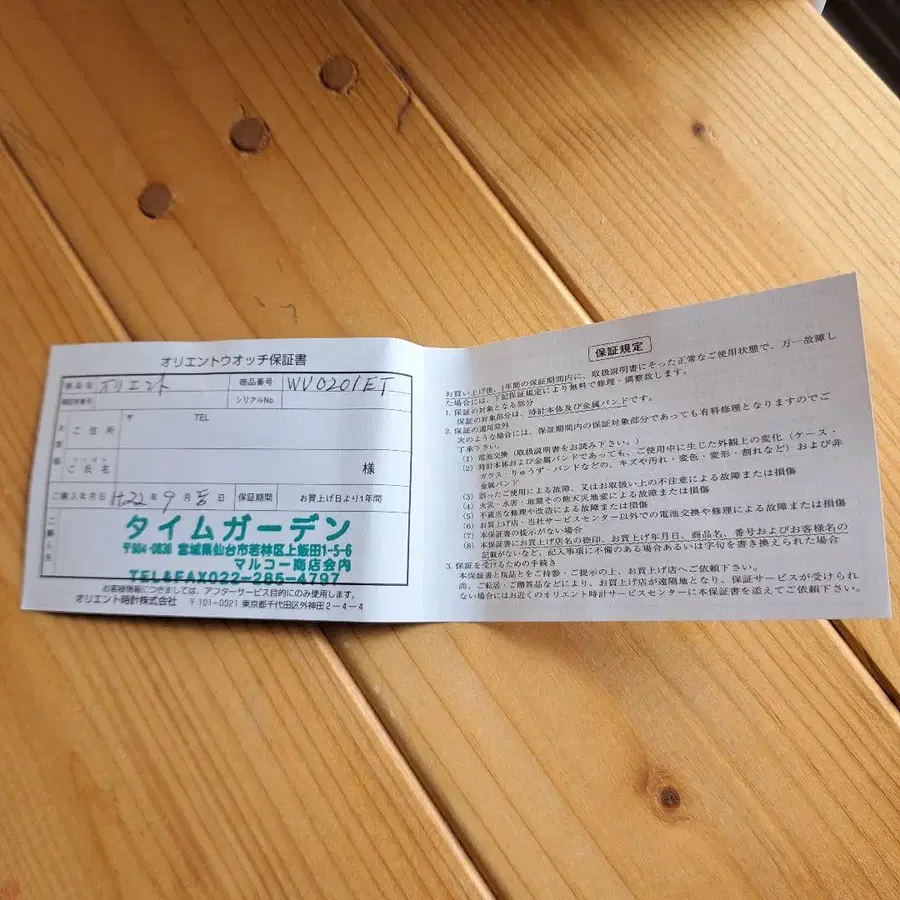 オリエントウオッチ保証書
オリエント
商品番号 WV0201ET
シリアルNo.
お客様
ご住所
〒 TEL
ご氏名 様
ご購入年月日 H22年9月 日 保証期間 お買上げ日より1年間
タイムガーデン
宮城県仙台市若林区上飯田1-5-6
マルコー商店会内
TEL&FAX022-285-4797
お客様情報につきましては、アフターサービス目的にのみ使用します。
オリエント時計株式会社 〒101-0021 東京都千代田区外神田2-4-4
保証規定
お買上げ後、1年間の保証期間内に、取扱説明書にそった正常なご使用状態で、万一故障し
た場合には、下記保証規定により無料で修理・調整致します。
1. 保証の対象となる部分
保証の対象部分は、時計本体及び金属バンドです。
2. 保証の適用除外
次のような場合には、保証期間内の保証対象部分であっても有料修理となりますのでご
了承下さい。
(1) 電池交換(取扱説明書をお読み下さい。)
(2) 時計本体および金属バンドであっても、ご使用中に生じた外観上の変化(ケース・
ガラス・りゅうず・バンドなどの、キズや汚れ・変色・変形・割れなど)および非
金属バンド
(3) 誤ったご使用による故障、又はお取扱い上の不注意による故障または損傷
(4) 火災・水害・地震その他天災地変による故障または損傷
(5) 不適当な修理や改造による故障または損傷
(6) お買上げ店・当社サービスセンター以外での電池交換や修理による故障または損傷
(7) 本保証書の提示がない場合
(8) 本保証書にお買上げ店名の捺印、お買上げ年月日、商品名、番号およびお客様名の
記載がないなど、記入事項に不備のある場合あるいは字句を書き換えられた場合
3. 保証を受けるための手続き
本保証書と現品とをご持参・ご提示の上、お買上げ店へご依頼下さい。
尚、ご転居・ご贈答品などにより、お買上げ店が遠隔地となり、保証サービスが受けられ
ない場合にはお近くのオリエント時計サービスセンターに本保証書を添えてご依頼下さい。